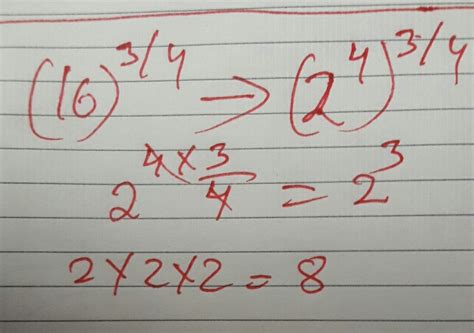 (16)^3/4 → (2^4)^3/4
2^4×3/4 = 2^3
2×2×2 = 8